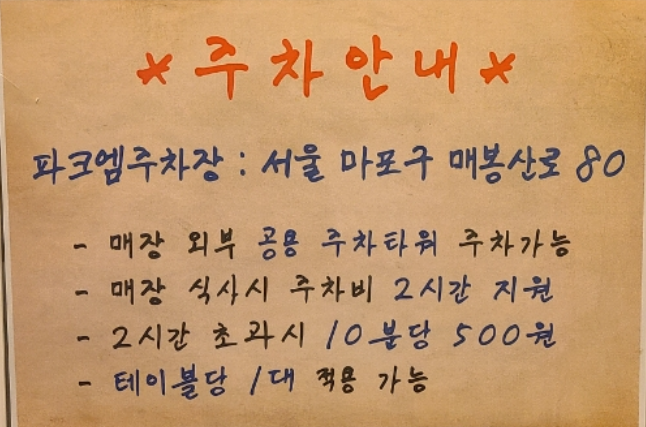 *주차안내*
파크엠주차장 : 서울 마포구 매봉산로 80
- 매장 외부 공용 주차타워 주차가능
- 매장 식사시 주차비 2시간 지원
- 2시간 초과시 10분당 500원
- 테이블당 1대 적용 가능